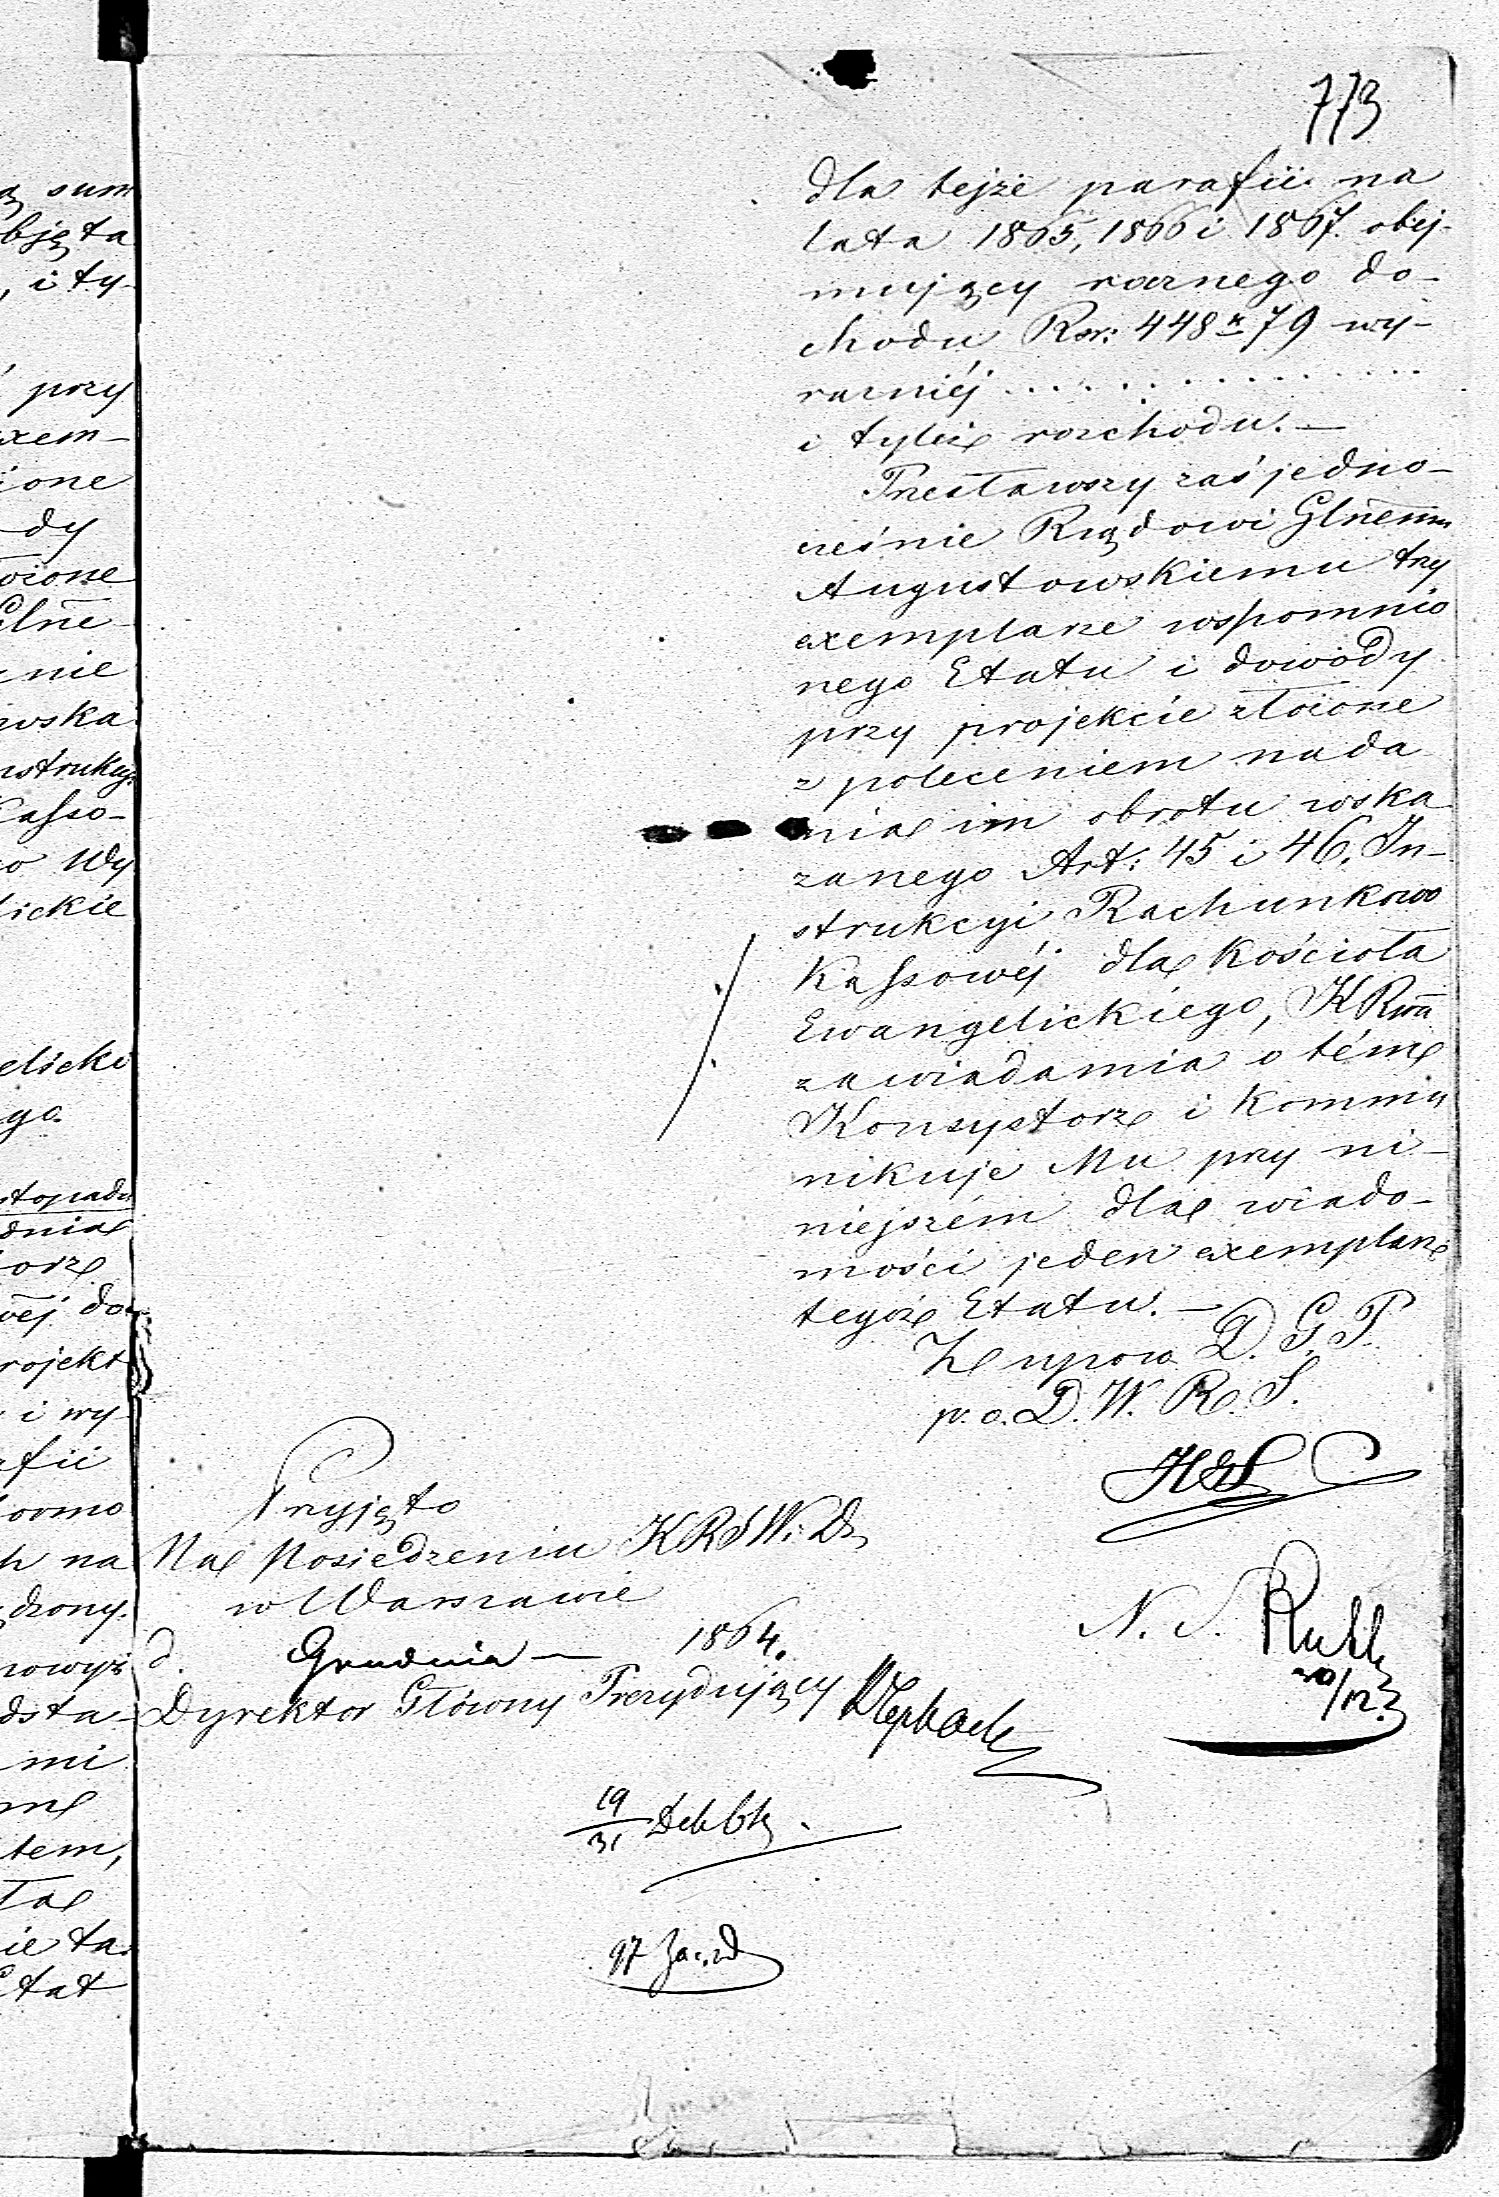 773
dla tejże parafii na
lata 1865, 1866 i 1867. obej-
mujący rocznego do-
chodu Rsr: 448 k 79 wy-
raźniéj . . . . . . . . . . . . .
i tyleż rozchodu. —
Przesławszy zaś jedno-
cześnie Rządowi Glnemu
Augustowskiemu trzy
exemplarze wspomnio
nego Etatu i dowody
przy projekcie złożone
z poleceniem nada
nia im obrotu wska
zanego Art: 45 i 46. In-
strukcyi Rachunkowo
Kassowéj dla Kościoła
Ewangelickiego, KRwa
zawiadamia o tém
Konsystorz i kommu
nikuje Mu przy ni-
niejszém dla wiado-
mości jeden exemplarz
tegoż Etatu. —
Z upow. D. G. P.
p. o. D. W. R. S.
Przyjęto
Na Posiedzeniu KRSW. i D.
w Warszawie
d. Grudnia — 1864.
Dyrektor Główny Prezydujący
N. S.
20/12
19/31
97
ą sum
bjęta
, i ty-
przy
xem-
ione
dy
ożone
Glne
nie
wska
nstrukcyi
Kasso-
o Wy
lickie
elicki
go.
stopada
dnia
orz
wéj do
rojekt
i wy-
afii
formo
h na
dzony.
nowyż
dsta-
mi
tem,
ła
ie ta
Etat